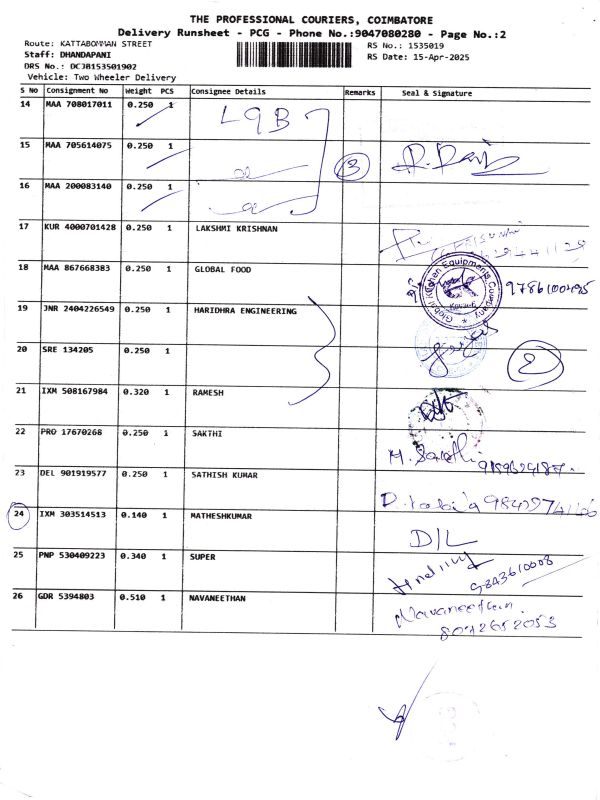 THE PROFESSIONAL COURIERS, COIMBATORE
Delivery Runsheet - PCG - Phone No.:9047080280 - Page No.:2
Route: KATTABOMMAN STREET
RS No.: 1535019
Staff: DHANDAPANI
RS Date: 15-Apr-2025
DRS No.: DCJB153501902
Vehicle: Two Wheeler Delivery
S No Consignment No Weight PCS Consignee Details Remarks Seal & Signature
14 MAA 708017011 0.250 1 LGB
15 MAA 705614075 0.250 1 3
16 MAA 200083140 0.250 1
17 KUR 4000701428 0.250 1 LAKSHMI KRISHNAN
18 MAA 867668383 0.250 1 GLOBAL FOOD Global Kitchen Equipments Company
19 JNR 2404226549 0.250 1 HARIDHRA ENGINEERING
20 SRE 134205 0.250 1 2
21 IXM 508167984 0.320 1 RAMESH
22 PRO 17670268 0.250 1 SAKTHI
23 DEL 901919577 0.250 1 SATHISH KUMAR
24 IXM 303514513 0.140 1 MATHESHKUMAR D/L
25 PNP 530409223 0.340 1 SUPER 9843610008
26 GDR 5394803 0.510 1 NAVANEETHAN Navaneethan.
8072652053